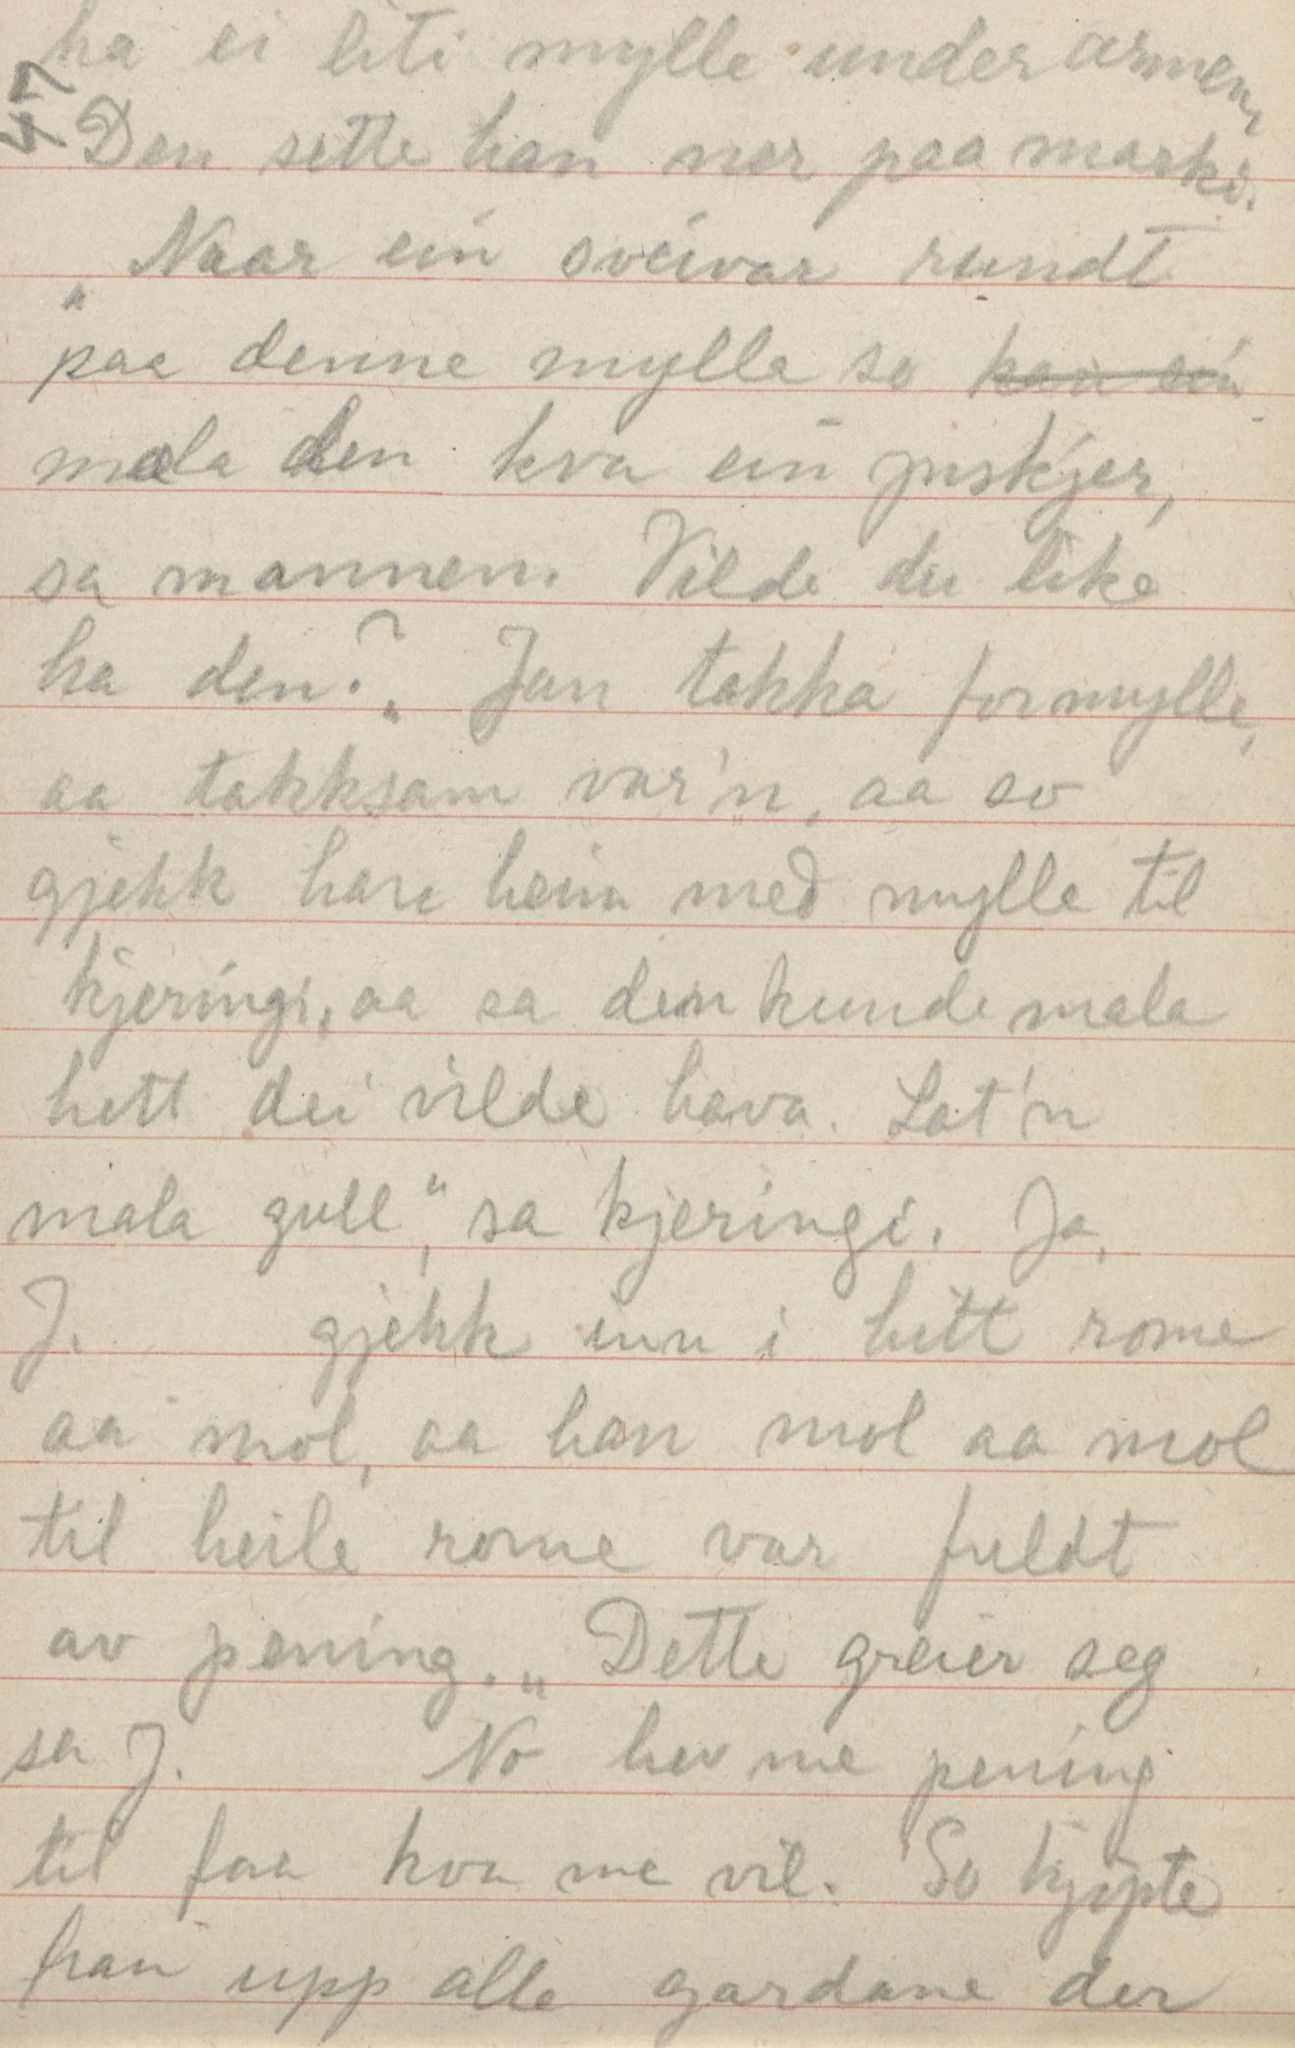 47
ha ei liti mylle under armen,
Den sette han ner paa marki.
„Naar ein sveivar rundt
paa denne mylla so kan ein
mala den kva ein ynskjer,
sa mannen. Vilde du like
ha den?„ Jan takka for mylle,
aa takksam var'n, aa so
gjekk han heim med mylle til
kjeringi, aa sa den kunde mala
hott dei vilde hava. Lat'n
mala gull", sa kjeringi. Ja,
J. gjekk inn i hitt rome
aa mol, aa han mol aa mol
til heile rome var fuldt
av pening. „Dette greier seg
sa J. No hev me pening
til faa kva me vil. So kjøpte
han upp alle gardane der